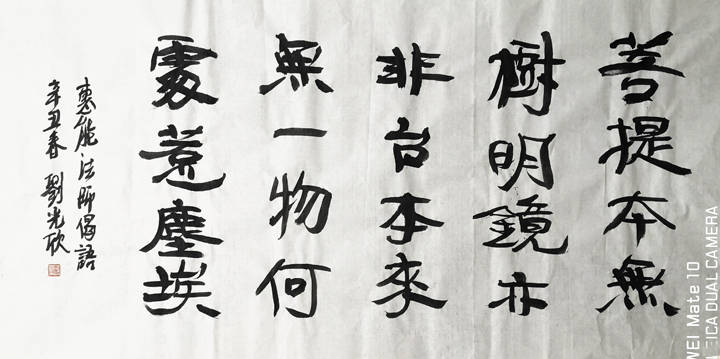 菩提本無
樹明鏡亦
非台本來
無一物何
處惹塵埃
惠能法師偈語
辛丑春 劉光欣
WEI Mate 10
EICA DUAL CAMERA